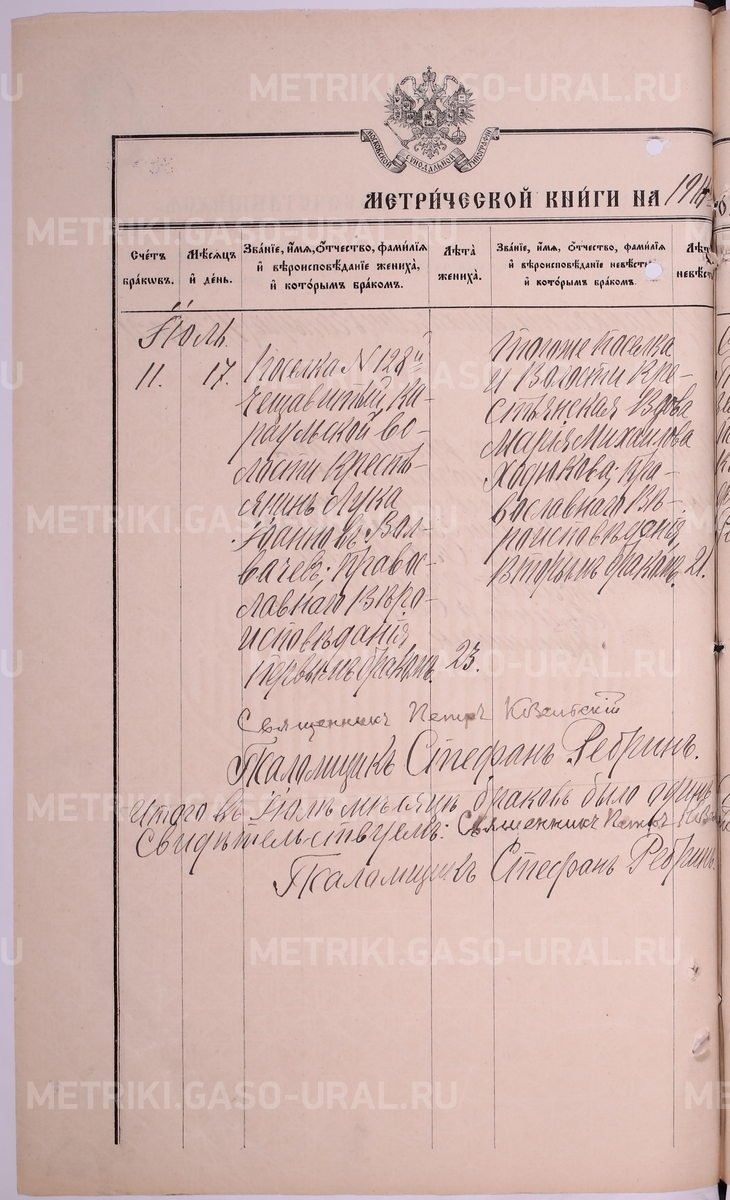 МОСКОВСКОЙ СѴНОДАЛЬНОЙ ТИПОГРАФІИ
МЕТРИ́ЧЕСКОЙ КНИ́ГИ НА 1914
Сче́тъ бра́кѡвъ.
Мѣ́сѧцъ и҆ де́нь.
Зва́нїе, и҆́мѧ, ѻ҆́тчество, фами́лїѧ и҆ вѣроисповѣ́данїе жениха̀, и҆ кото́рымъ бра́комъ.
Лѣ́та жениха̀.
Зва́нїе, и҆́мѧ, ѻ҆́тчество, фами́лїѧ и҆ вѣроисповѣ́данїе невѣ́сты и҆ кото́рымъ бра́комъ.
Лѣ́т невѣ́ст
Іюль.
11.
17.
Поселка N 128й
Караульской во-
лости кресть-
янинъ Лука
Іоанновъ Вол-
вачевъ; Право-
славнаго Вѣро-
исповѣданія
первымъ бракомъ.
23.
Того же поселка
и Волости Кре-
стьянская Вдова
Марія Михаилова
Ходыкова; Пра-
вославнаго Вѣ-
роисповѣданія
вторымъ бракомъ.
21.
Священникъ Петръ
Псаломщикъ Стефанъ Ребринъ.
Итого въ Іюлѣ мѣсяцѣ браковъ было одинъ
Свидѣтельствуемъ: Священникъ Петръ
Псаломщикъ Стефанъ Ребринъ.
METRIKI.GASO-URAL.RU